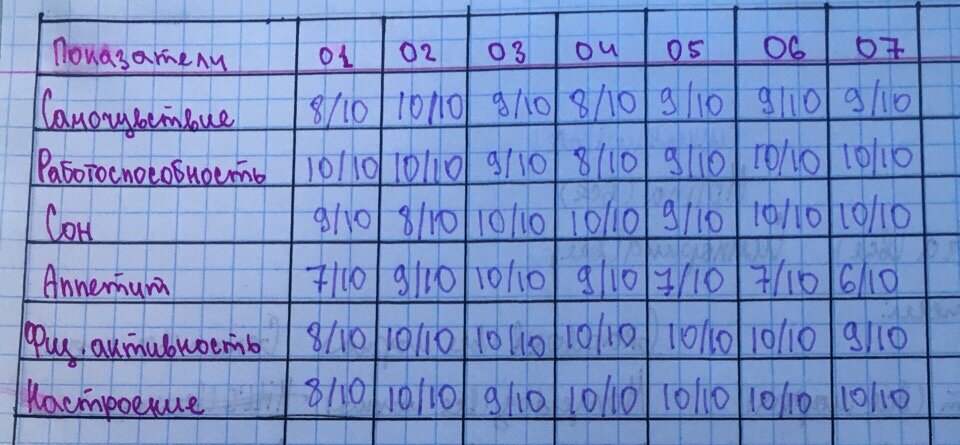 Показатели 01 02 03 04 05 06 07
Самочувствие 8/10 10/10 9/10 8/10 9/10 9/10 9/10
Работоспособность 10/10 10/10 9/10 8/10 9/10 10/10 10/10
Сон 9/10 8/10 10/10 10/10 9/10 10/10 10/10
Аппетит 7/10 9/10 10/10 9/10 7/10 7/10 6/10
Физ. активность 8/10 10/10 10/10 10/10 10/10 10/10 9/10
Настроение 8/10 10/10 9/10 10/10 10/10 10/10 10/10